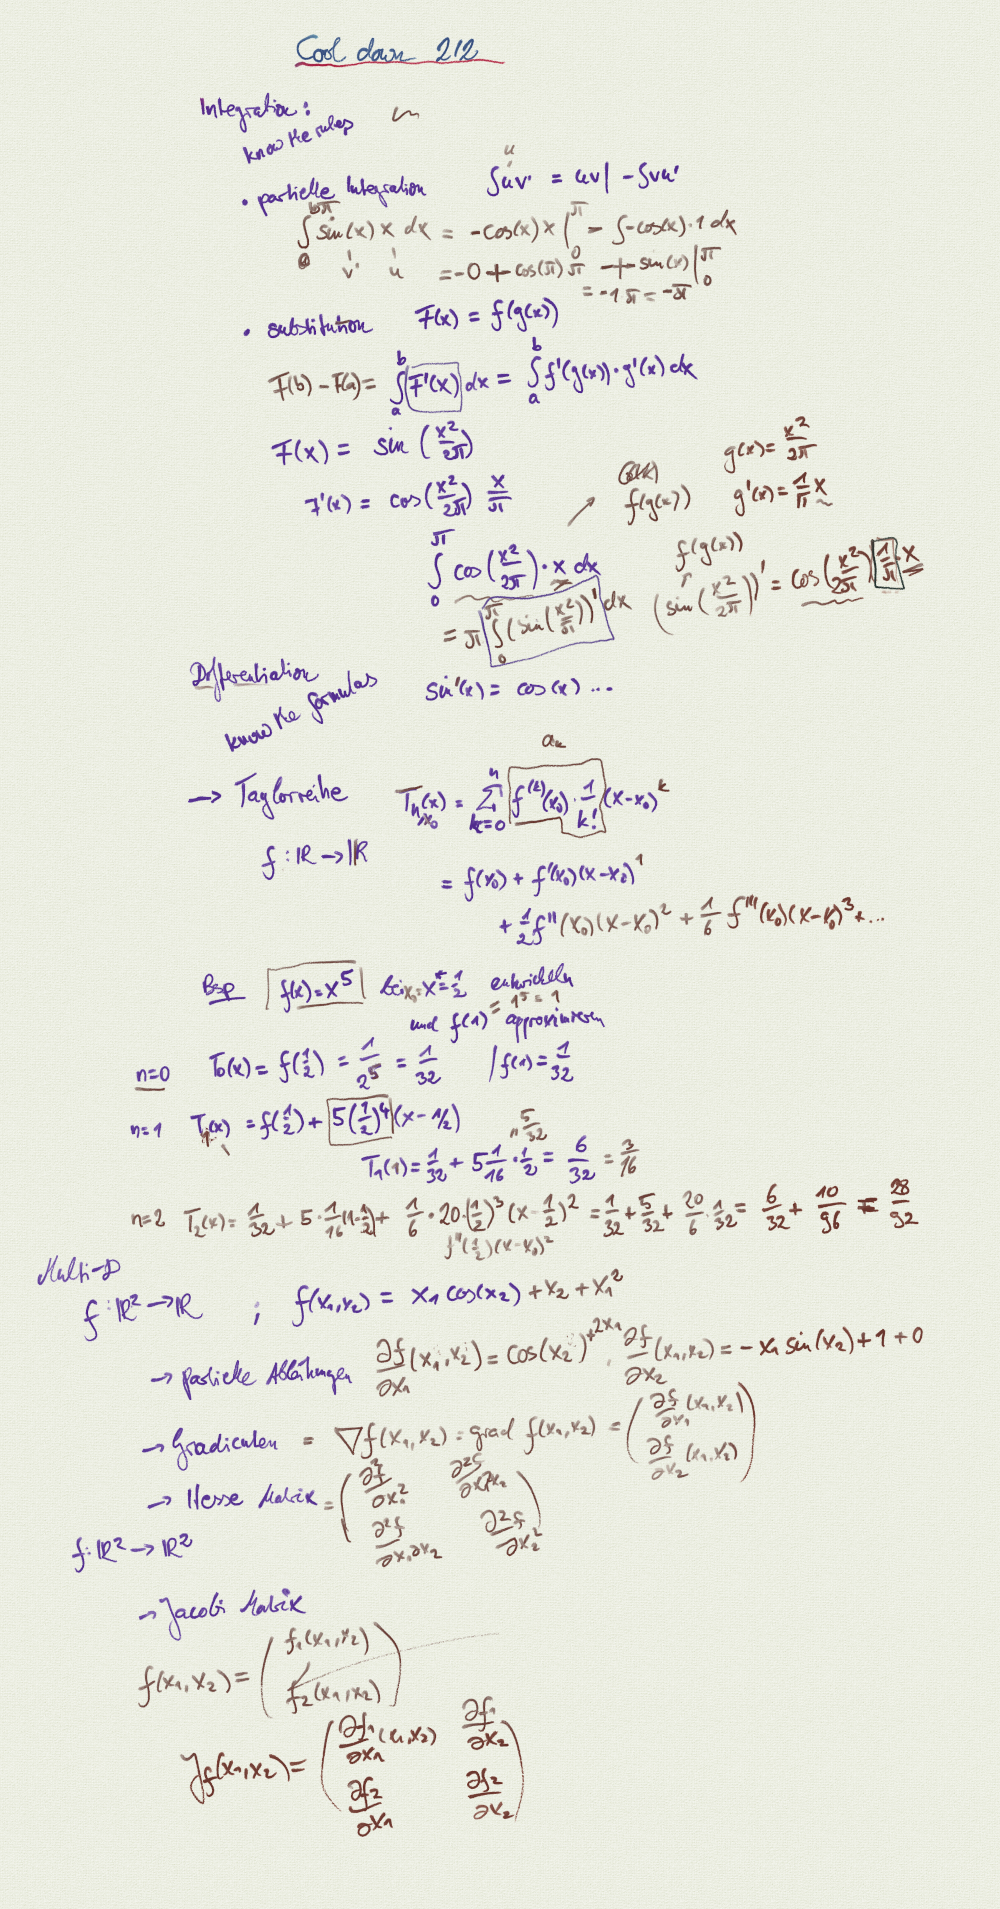 Cool down 2/2
Integration:
know the rules
u
• partielle Integration ∫uv' = uv| - ∫vu'
∫ sin(x) x dx = -cos(x) x |₀^π - ∫-cos(x)·1 dx
v' u = -0 + cos(π) π + sin(x) |₀^π
= -1 π = -π
• substitution F(x) = f(g(x))
F(b) - F(a) = ∫ₐᵇ F'(x) dx = ∫ₐᵇ f'(g(x))·g'(x) dx
F(x) = sin (x²/2π)
g(x) = x²/2π
F'(x) = cos(x²/2π) x/π
f(g(x)) g'(x) = 1/π x
∫₀^π cos(x²/2π)·x dx
f(g(x))
(sin(x²/2π))' = cos(x²/2π) 1/π·x
= π ∫₀^π (sin(x²/π))' dx
Differentiation
know the formulas sin'(x) = cos(x) ...
aₖ
→ Taylorreihe Tₙ,ₓ₀(x) = Σₖ₌₀ⁿ f⁽ᵏ⁾(x₀)·1/k! (x-x₀)ᵏ
f: ℝ → ℝ
= f(x₀) + f'(x₀)(x-x₀)¹
+ 1/2 f''(x₀)(x-x₀)² + 1/6 f'''(x₀)(x-x₀)³ + ...
Bsp f(x) = x⁵ bei x₀ = x* = 1/2 entwickeln
und f(1) = 1⁵ = 1 approximieren
n=0 T₀(x) = f(1/2) = 1/2⁵ = 1/32 | f(1) = 1/32
n=1 T₁(x) = f(1/2) + 5(1/2)⁴ (x - 1/2)
" 5/32
T₁(1) = 1/32 + 5 1/16 · 1/2 = 6/32 = 3/16
n=2 T₂(x) = 1/32 + 5·1/16 (1-1/2) + 1/6 · 20·(1/2)³ (x - 1/2)² = 1/32 + 5/32 + 20/6 · 1/32 = 6/32 + 10/96 = 28/92
f''(1/2)(x-x₀)²
Multi-D
f: ℝ² → ℝ ; f(x₁,x₂) = x₁ cos(x₂) + x₂ + x₁²
→ partielle Ableitungen ∂f/∂x₁ (x₁,x₂) = cos(x₂) + 2x₁, ∂f/∂x₂ (x₁,x₂) = - x₁ sin(x₂) + 1 + 0
→ Gradienten = ∇f(x₁,x₂) = grad f(x₁,x₂) = (∂f/∂x₁ (x₁,x₂)
∂f/∂x₂ (x₁,x₂))
→ Hesse Matrix = (∂²f/∂x₁² ∂²f/∂x₁∂x₂
∂²f/∂x₁∂x₂ ∂²f/∂x₂²)
f: ℝ² → ℝ²
→ Jacobi Matrix
f(x₁,x₂) = (f₁(x₁,x₂)
f₂(x₁,x₂))
Jf(x₁,x₂) = (∂f₁/∂x₁ (x₁,x₂) ∂f₁/∂x₂
∂f₂/∂x₁ ∂f₂/∂x₂)